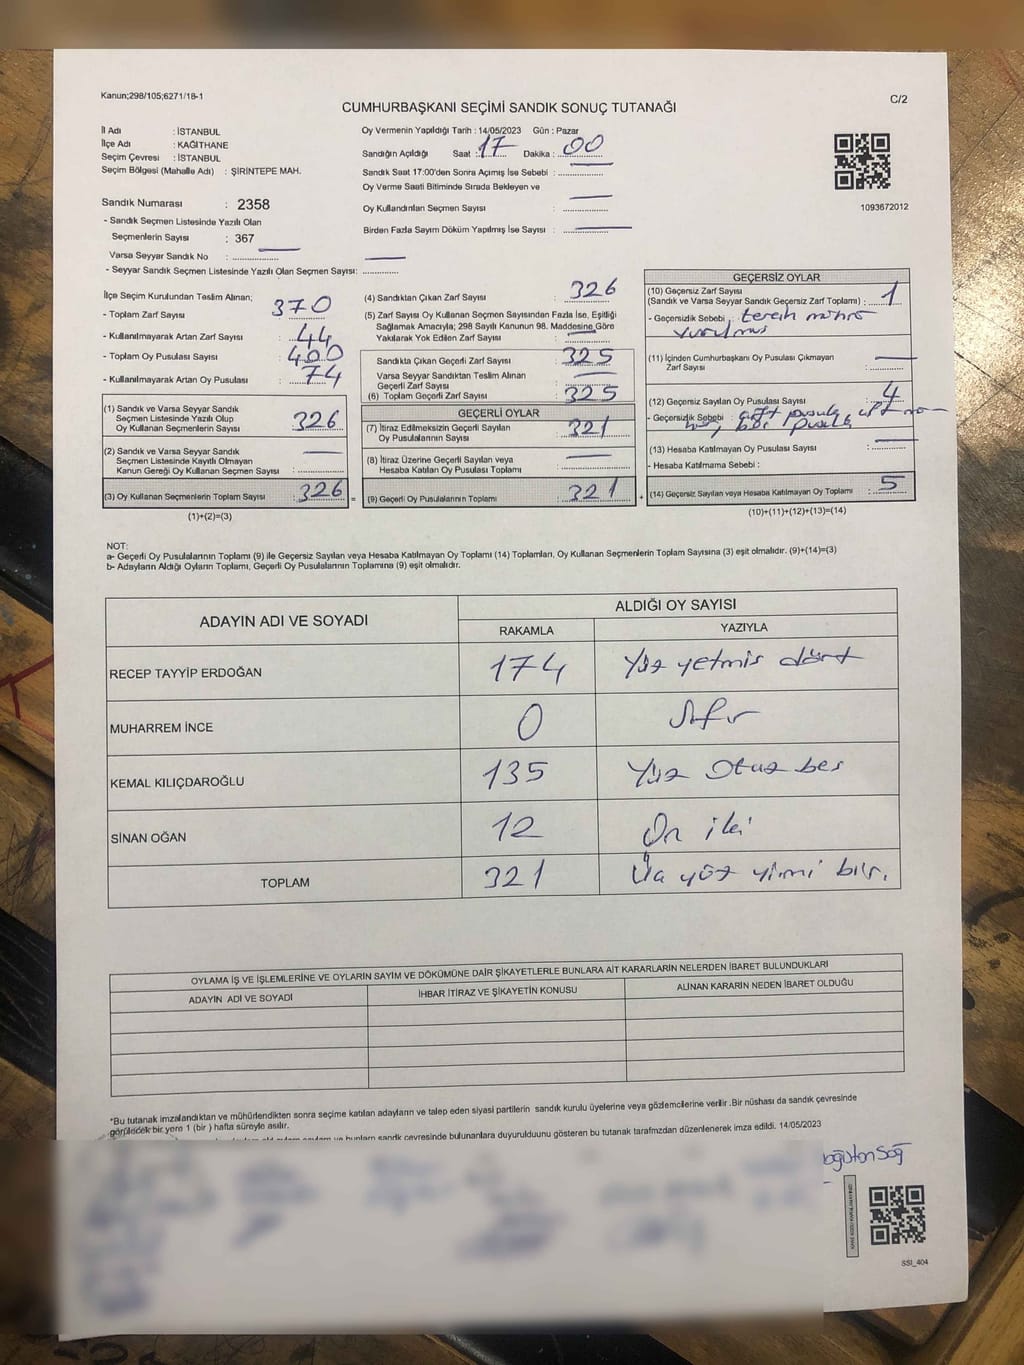 Kanun;298/105;6271/18-1
C/2
CUMHURBAŞKANI SEÇİMİ SANDIK SONUÇ TUTANAĞI
İl Adı : İSTANBUL
İlçe Adı : KAĞITHANE
Seçim Çevresi : İSTANBUL
Seçim Bölgesi (Mahalle Adı) : ŞİRİNTEPE MAH.
Sandık Numarası : 2358
- Sandık Seçmen Listesinde Yazılı Olan
Seçmenlerin Sayısı : 367
Varsa Seyyar Sandık No :
- Seyyar Sandık Seçmen Listesinde Yazılı Olan Seçmen Sayısı:
Oy Vermenin Yapıldığı Tarih : 14/05/2023 Gün : Pazar
Sandığın Açıldığı Saat : 17 Dakika : 00
Sandık Saat 17:00'den Sonra Açımış İse Sebebi :
Oy Verme Saati Bitiminde Sırada Bekleyen ve
Oy Kullandırılan Seçmen Sayısı :
Birden Fazla Sayım Döküm Yapılmış İse Sayısı :
1093672012
İlçe Seçim Kurulundan Teslim Alınan;
- Toplam Zarf Sayısı : 370
- Kullanılmayarak Artan Zarf Sayısı : 44
- Toplam Oy Pusulası Sayısı : 400
- Kullanılmayarak Artan Oy Pusulası : 74
(1) Sandık ve Varsa Seyyar Sandık
Seçmen Listesinde Yazılı Olup
Oy Kullanan Seçmenlerin Sayısı : 326
(2) Sandık ve Varsa Seyyar Sandık
Seçmen Listesinde Kayıtlı Olmayan
Kanun Gereği Oy Kullanan Seçmen Sayısı :
(3) Oy Kullanan Seçmenlerin Toplam Sayısı : 326
(1)+(2)=(3)
(4) Sandıktan Çıkan Zarf Sayısı : 326
(5) Zarf Sayısı Oy Kullanan Seçmen Sayısından Fazla İse, Eşitliği
Sağlamak Amacıyla; 298 Sayılı Kanunun 98. Maddesine Göre
Yakılarak Yok Edilen Zarf Sayısı :
Sandıkta Çıkan Geçerli Zarf Sayısı : 325
Varsa Seyyar Sandıktan Teslim Alınan
Geçerli Zarf Sayısı :
(6) Toplam Geçerli Zarf Sayısı : 325
GEÇERLİ OYLAR
(7) İtiraz Edilmeksizin Geçerli Sayılan
Oy Pusulalarının Sayısı : 321
(8) İtiraz Üzerine Geçerli Sayılan veya
Hesaba Katılan Oy Pusulası Toplamı :
(9) Geçerli Oy Pusulalarının Toplamı : 321
GEÇERSİZ OYLAR
(10) Geçersiz Zarf Sayısı
(Sandık ve Varsa Seyyar Sandık Geçersiz Zarf Toplamı) : 1
- Geçersizlik Sebebi : tercih mührü
vurulmuş
(11) İçinden Cumhurbaşkanı Oy Pusulası Çıkmayan
Zarf Sayısı :
(12) Geçersiz Sayılan Oy Pusulası Sayısı : 4
- Geçersizlik Sebebi : çift pusula,
(13) Hesaba Katılmayan Oy Pusulası Sayısı :
- Hesaba Katılmama Sebebi :
(14) Geçersiz Sayılan veya Hesaba Katılmayan Oy Toplamı : 5
(10)+(11)+(12)+(13)=(14)
NOT:
a- Geçerli Oy Pusulalarının Toplamı (9) ile Geçersiz Sayılan veya Hesaba Katılmayan Oy Toplamı (14) Toplamları, Oy Kullanan Seçmenlerin Toplam Sayısına (3) eşit olmalıdır. (9)+(14)=(3)
b- Adayların Aldığı Oyların Toplamı, Geçerli Oy Pusulalarının Toplamına (9) eşit olmalıdır.
ADAYIN ADI VE SOYADI
ALDIĞI OY SAYISI
RAKAMLA YAZIYLA
RECEP TAYYİP ERDOĞAN 174 Yüz yetmiş dört
MUHARREM İNCE 0 Sıfır
KEMAL KILIÇDAROĞLU 135 Yüz Otuz beş
SİNAN OĞAN 12 On iki
TOPLAM 321 Üç yüz yirmi bir.
OYLAMA İŞ VE İŞLEMLERİNE VE OYLARIN SAYIM VE DÖKÜMÜNE DAİR ŞİKAYETLERLE BUNLARA AİT KARARLARIN NELERDEN İBARET BULUNDUKLARI
ADAYIN ADI VE SOYADI İHBAR İTİRAZ VE ŞİKAYETİN KONUSU ALINAN KARARIN NEDEN İBARET OLDUĞU
*Bu tutanak imzalandıktan ve mühürlendikten sonra seçime katılan adayların ve talep eden siyasi partilerin sandık kurulu üyelerine veya gözlemcilerine verilir .Bir nüshası da sandık çevresinde
görülecek bir yere 1 (bir ) hafta süreyle asılır.
bunların sandık çevresinde bulunanlara duyurulduunu gösteren bu tutanak tarafımızdan düzenlenerek imza edildi. 14/05/2023
SSI_404